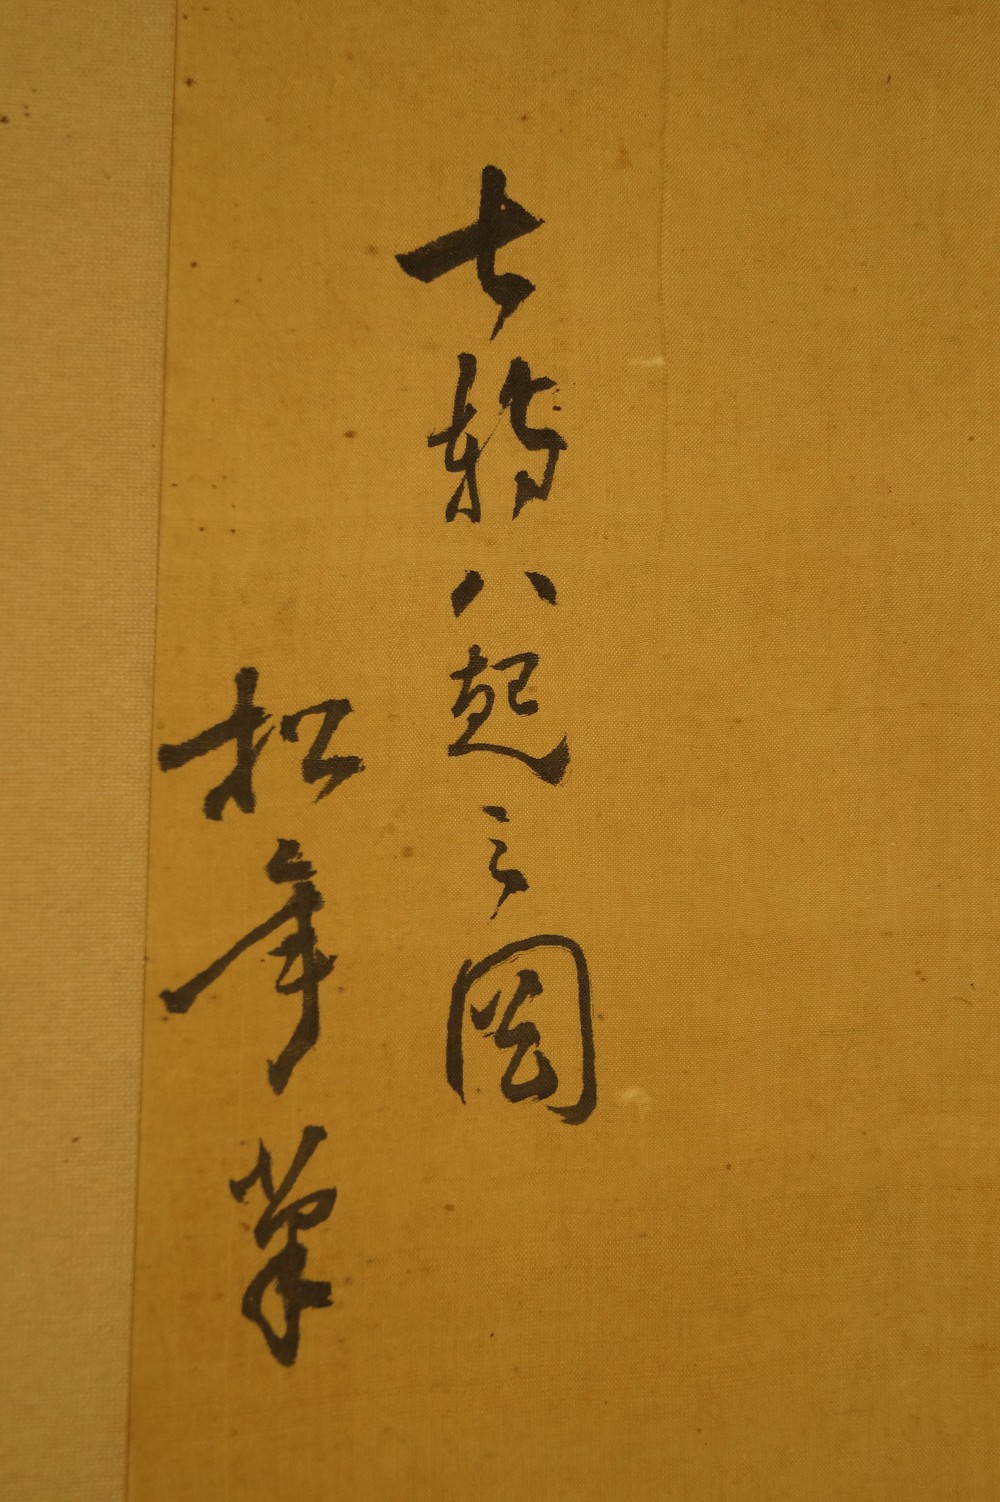 七轉八起之図
松年筆